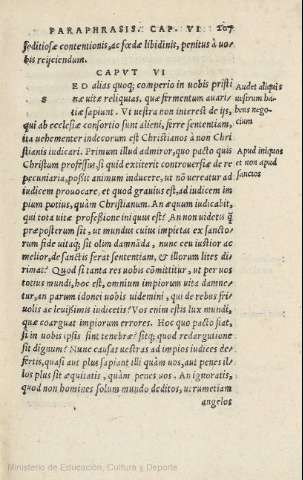 PARAPHRASIS. CAP. VI 207
seditiosæ contentionis, ac fœdæ libidinis, penitus à uo-
bis reijciendum.
CAPVT VI
SED alias quoq; comperio in uobis pristi
næ uitæ reliquias, quæ firmentum auari-
tiæ sapiunt. Vi uestra non interest de ijs,
qui ab ecclesiæ consortio sunt alieni, ferre sententiam,
ita uehementer indecorum est Christianos à non Chri
stianis iudicari. Primum illud admiror, quo pacto quis
Christum professus, si quid extiterit controuersiæ de re
pecuniaria, possit animum inducere, ut nõ uereatur ad
iudicem prouocare, et quod grauius est, ad iudicem im
pium potius, quàm Christianum. An æquum iudicabit,
qui tota uitæ professione iniquus est? An non uidetis q̃
præposterum sit, ut mundus cuius impietas ex sancto-
rum fide uitaq; sit olim damnãda, nunc ceu iustior ac
melior, de sanctis ferat sententiam, & illorum lites di-
rimat? Quod si tanta res uobis cõmittitur, ut per uos
totius mundi, hoc est, omnium impiorum uita damne-
tur, an parum idonei uobis uidemini, qui de rebus fri
uolis ac leuissimis iudicetis? Vos enim estis lux mundi,
quæ coarguat impiorum errores. Hoc quo pacto fiat,
si in uobis ipsis sint tenebræ? sitq; quod redargutione
sit dignum? Nunc causas uestras ad impios iudices de-
fertis, quasi aut plus sapiant illi quàm uos, aut penes il-
los plus sit æquitatis, quàm penes uos. An ignoratis,
quod non homines solum mundo deditos, uerumetiam
angelos
Audet aliquis
uestrum ha-
bens nego-
cium
Apud iniquos
et non apud
sanctos
Ministerio de Educación, Cultura y Deporte